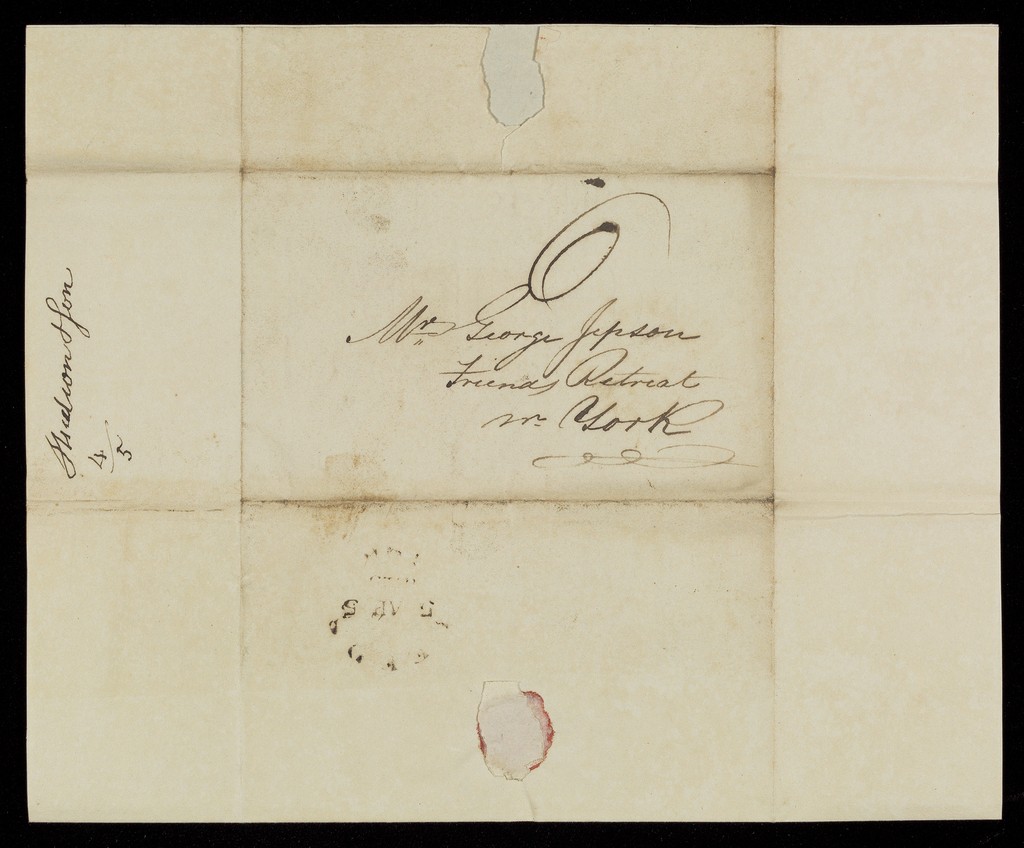 6
Mr. George Jepson
Friends Retreat
nr. York
Hudson & Son
4/5